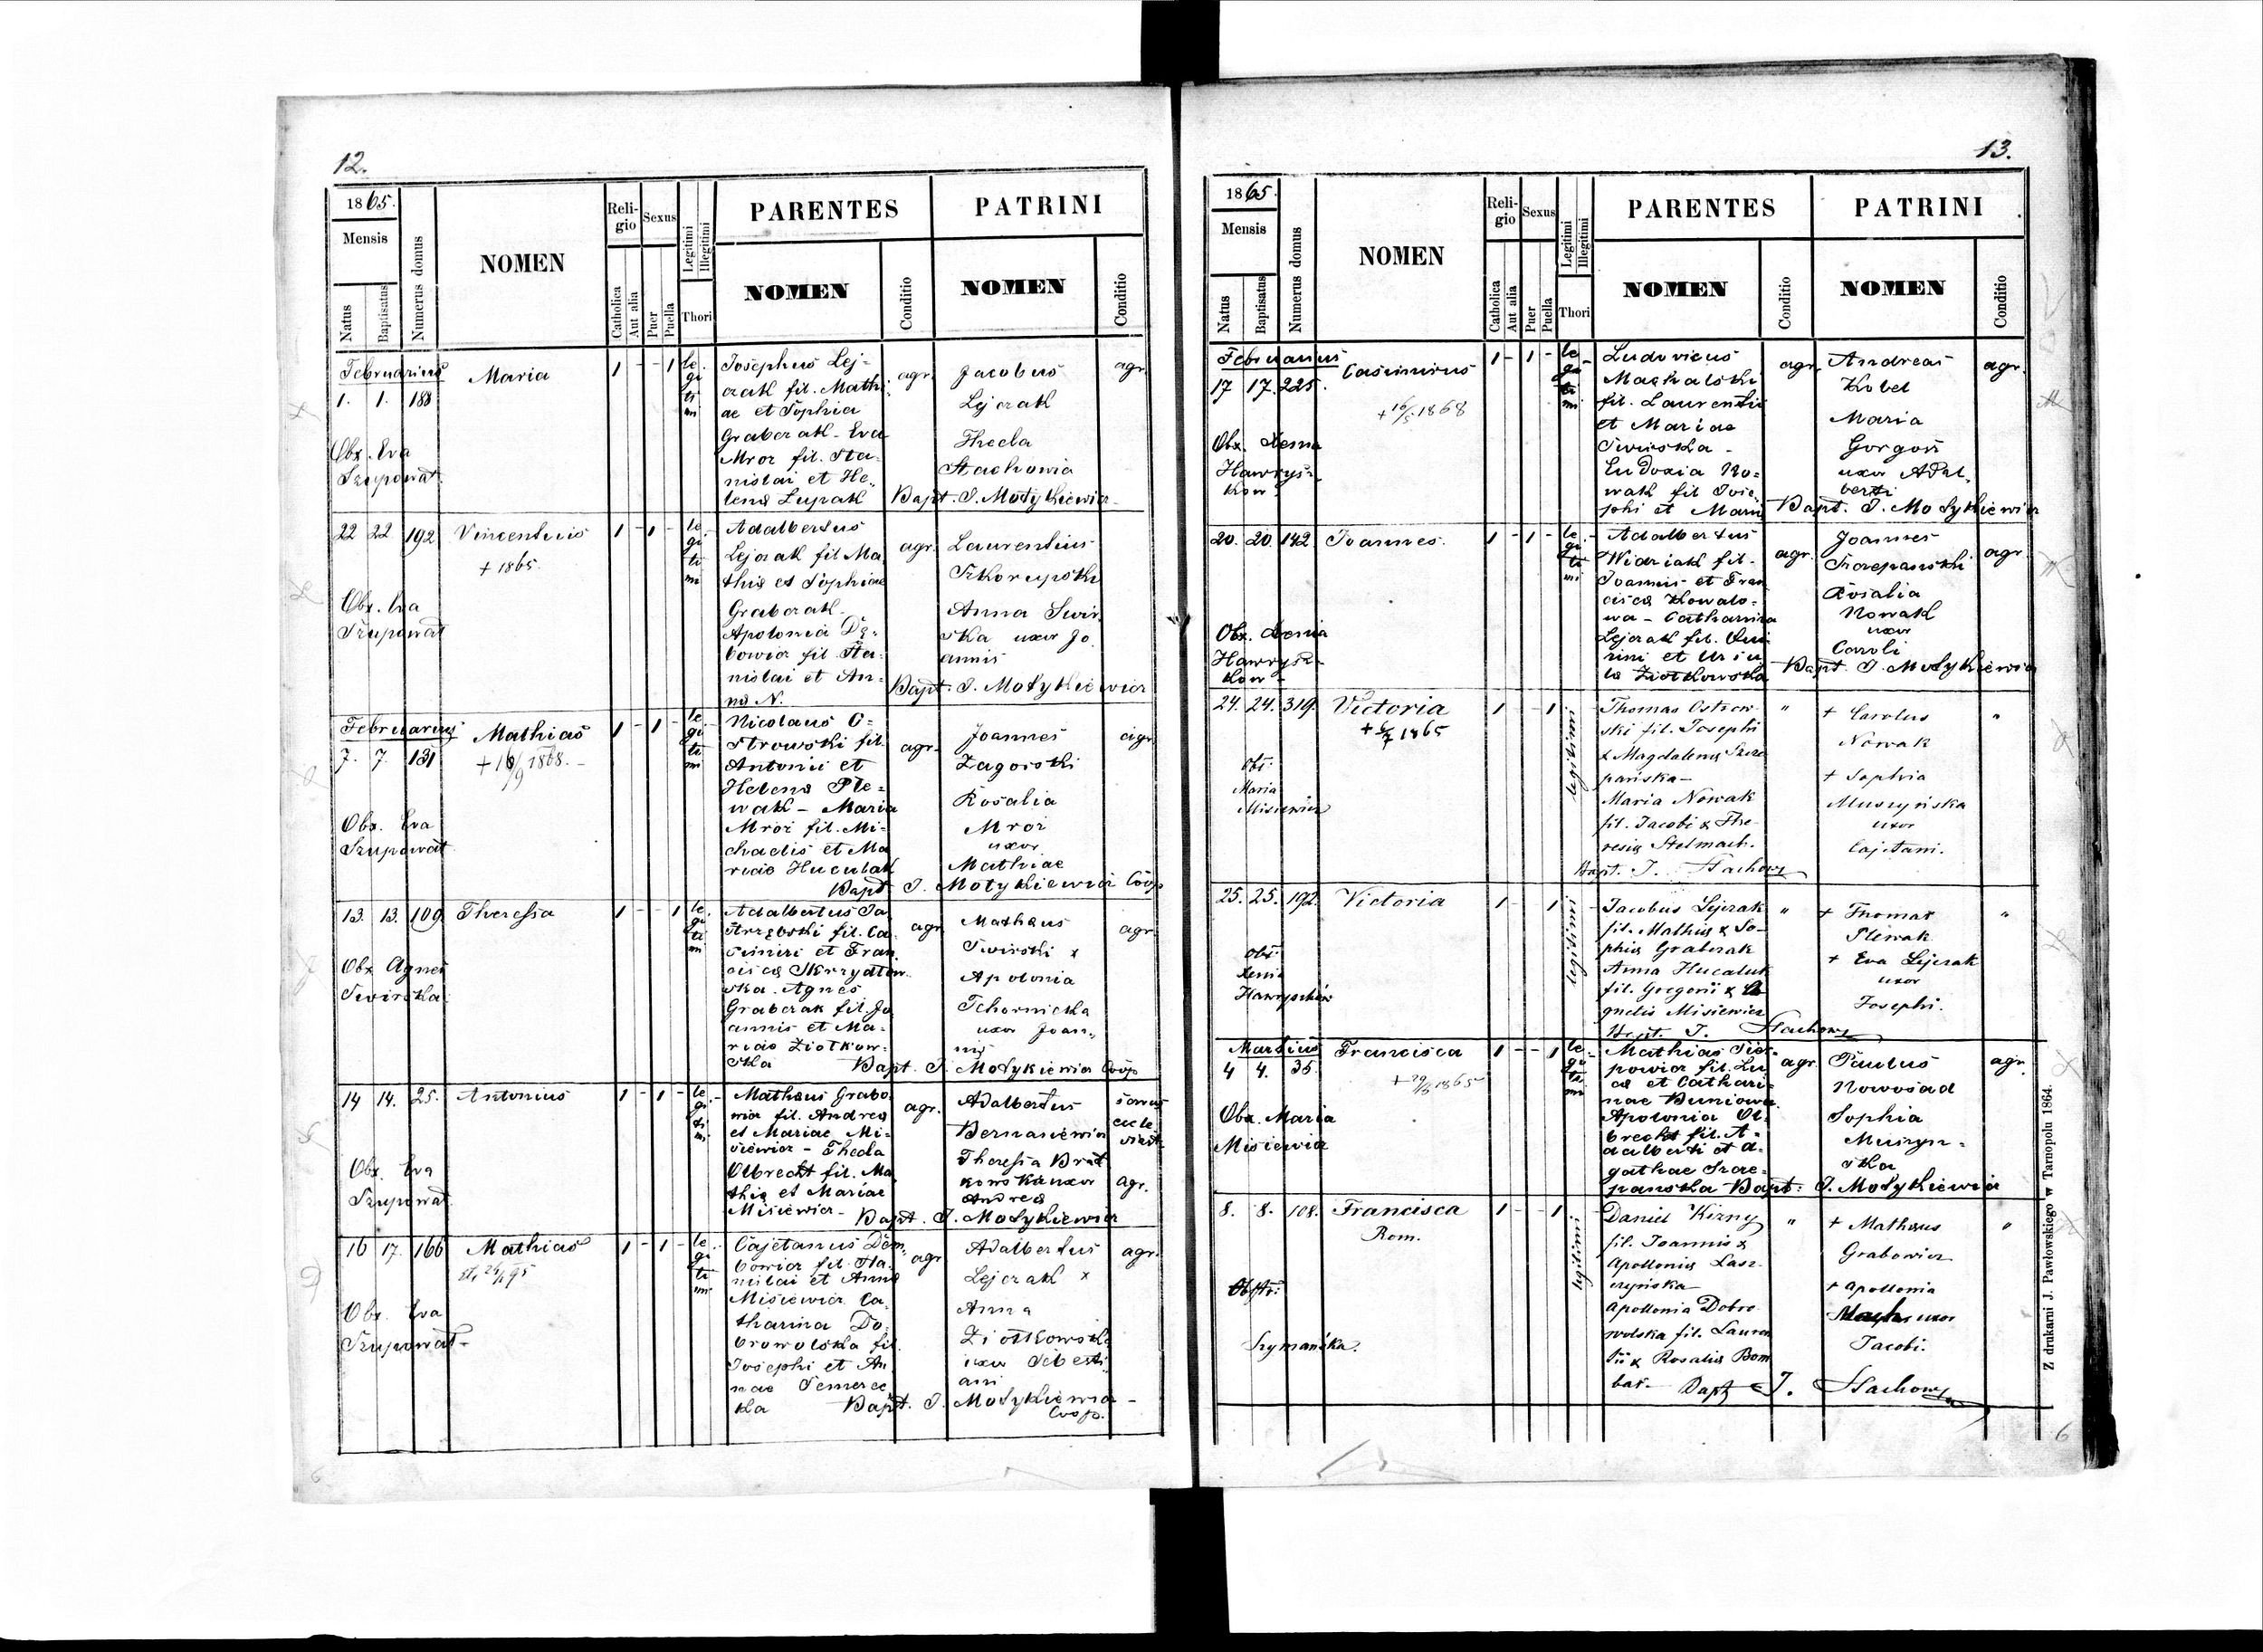 12.
1865.
Mensis
Natus
Baptisatus
Numerus domus
NOMEN
Reli-
gio
Catholica
Aut alia
Sexus
Puer
Puella
Legitimi
Illegitimi
Thori
PARENTES
NOMEN
Conditio
PATRINI
NOMEN
Conditio
Februarius
1. 1. 188
Obx. Eva
Szupowat
Maria
1 - - 1
le-
gi
ti
mi
Josephus Lej-
czak fil. Mathi
ae et Sophia
Graberak - Eva
Mroz fil. Sta-
nislai et He-
lena Lupak
agr.
Jacobus
Lejczak
Thecla
Stachowicz
agr.
Bapt. I. Motykiewicz
22 22 192
Obx. Eva
Szupowat
Vincentius
+ 1865
1 - 1 -
le
gi
ti
mi
Adalbertus
Lejczak fil Ma
thiæ et Sophiae
Graberak -
Apolonia Dę-
bowicz fil. Sta-
nislai et An-
na N.
agr.
Laurentius
Szkorupski
Anna Swir
ska uxor Jo
annis
Bapt. I. Motykiewicz
Februarius
7. 7. 131
Obx. Eva
Szupowat
Mathias
+ 16/9 1868. -
1 - 1 -
le
gi
ti
mi
Nicolaus O-
strowski fil.
Antonii et
Helena Ple-
wak - Maria
Mroz fil. Mi-
chaelis et Ma
riae Huculak
agr.
Joannes
Zagorski
Rosalia
Mroz
uxor
Mathiae
agr
Bapt I. Motykiewicz Coop
13. 13. 109
Obx Agnes
Swirska
Theresia
1 - - 1
le
gi
ti
mi
Adalbertus Ja
strzębski fil. Ca
simiri et Fran
cisca Skrzydłow
ska. Agnes
Graberak fil. Jo
annis et Ma-
riae Ziołkow-
ska
agr
Mathæus
Swirski x
Apolonia
Tchornicka
uxor Joan-
nis
agr.
Bapt. I. Motykiewicz Coop
14 14. 25.
Obx. Eva
Szupowat
Antonius
1 - 1 -
le
gi
ti
mi
Mathæus Grabo
wicz fil. Andreæ
et Mariae Mi-
siewicz - Thecla
Olbrecht fil. Ma
thiæ et Mariae
Misiewicz -
agr.
Adalbertus
Bernasiewicz
Theresia Brat
kowska uxor
Andreæ
agr.
Bapt. I. Motykiewicz
16 17. 166
Obx. Eva
Szupowat -
Mathias
1 - 1 -
le
gi
ti
mi
Cajetanus Dem
bowicz fil. Sta-
nislai et Anna
Misiewicz Ca-
tharina Do-
browolska fil.
Josephi et An
nae
ka
agr
Adalbertus
Lejczak x
Anna
Ziołkowska
uxor Sebasti
ani
agr.
Bapt. I. Motykiewicz -
Coop.
13.
1865.
Mensis
Natus
Baptisatus
Numerus domus
NOMEN
Reli-
gio
Catholica
Aut alia
Sexus
Puer
Puella
Legitimi
Illegitimi
Thori
PARENTES
NOMEN
Conditio
PATRINI
NOMEN
Conditio
Februarius
17 17. 225.
Obx. Xenia
Hawrysz-
kow -
Casimirus
+ 16/5 1868
1 - 1 -
le
gi
ti
mi
Ludovicus
Machalski
fil. Laurentii
et Mariae
Swirska -
Eudoxia No-
wak fil Jose-
phi et Maria
agr.
Andreas
Kobel
Maria
Gorgoń
uxor Adal-
berti
agr.
Bapt. I. Motykiewicz
20. 20. 142
Obx. Xenia
Hawrysz-
kow -
Joannes.
1 - 1 -
le
gi
ti
mi
Adalbertus
Wiarziak fil.
Joannis et Fran
cisca Kowalo-
wa - Catharina
Lejczak fil. Qui
rini et Ursu
la Ziołkowska
agr.
Joannes
Szczepanski
Rosalia
Nowak
uxor
Caroli
agr.
Bapt. I. Motykiewicz
24. 24. 319
Obst.
Maria
Misiewicz
Victoria
+ 6/7 1865
1 - 1
legitimi
Thomas Ostrow
ski fil. Josephi
& Magdalena Szcze
pańska -
Maria Nowak
fil. Jacobi & The-
resia Stelmach.
"
+ Carolus
Nowak
+ Sophia
Muszyńska
uxor
Cajetani.
"
Bapt. I. Stachow
25. 25. 192.
Obst.
Xenia
Hawryszków
Victoria
1 - 1
legitimi
Jacobus Lejczak
fil. Mathiæ & So-
phia Graberak
Anna Huculak
fil. Gregorii & A
gnetis Misiewicz
"
+ Thomas
Plewak
+ Eva Lejczak
uxor
Josephi.
"
Bapt. I. Stachow
Martius
4 4. 35.
Obx. Maria
Misiewicz
Francisca
1 - - 1
le
gi
ti
mi
Mathias
powicz fil. Lu
cæ et Cathari
nae Buniowa
Apolonia Ol-
brecht fil. A-
dalberti et A-
gathae Szcze-
panska
agr
Paulus
Nowosad
Sophia
Muszyn-
ska
agr.
Bapt. I. Motykiewicz
8. 8. 108.
Obst.
Szymańska.
Francisca
Rom.
1 - 1
legitimi
Daniel Kirny
fil. Joannis &
Apollonia Lasz-
czyńska -
Apollonia Dobro
wolska fil. Lauren
tii & Rosalia Bom
bas -
"
+ Mathæus
Grabowicz
+ Apollonia
uxor
Jacobi.
"
Bapt I. Stachow
Z drukarni J. Pawłowskiego w Tarnopolu 1864.
6